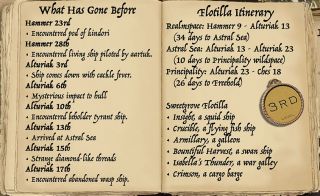 What Has Gone Before
Hammer 23rd
• Encountered pod of kindori
Hammer 28th
• Encountered living ship piloted by aartuk.
Alturiak 3rd
• Ship comes down with cackle fever.
Alturiak 6th
• Mysterious impact to hull
Alturiak 10th
• Encountered beholder tyrant ship.
Alturiak 13th
• Arrived at Astral Sea
Alturiak 15th
• Strange diamond-like threads
Alturiak 17th
• Encountered abandoned wasp ship.
Flotilla Itinerary
Realmspace: Hammer 9 - Alturiak 13
(34 days to Astral Sea)
Astral Sea: Alturiak 13 - Alturiak 23
(10 days to Principality wildspace)
Principality: Alturiak 23 - Ches 18
(26 days to Freehold)
Sweetgrove Flotilla
• Insight, a squid ship
• Crucible, a flying fish ship
• Armillary, a galleon
• Bountiful Harvest, a swan ship
• Isabella's Thunder, a war galley
• Crimson, a cargo barge
3RD